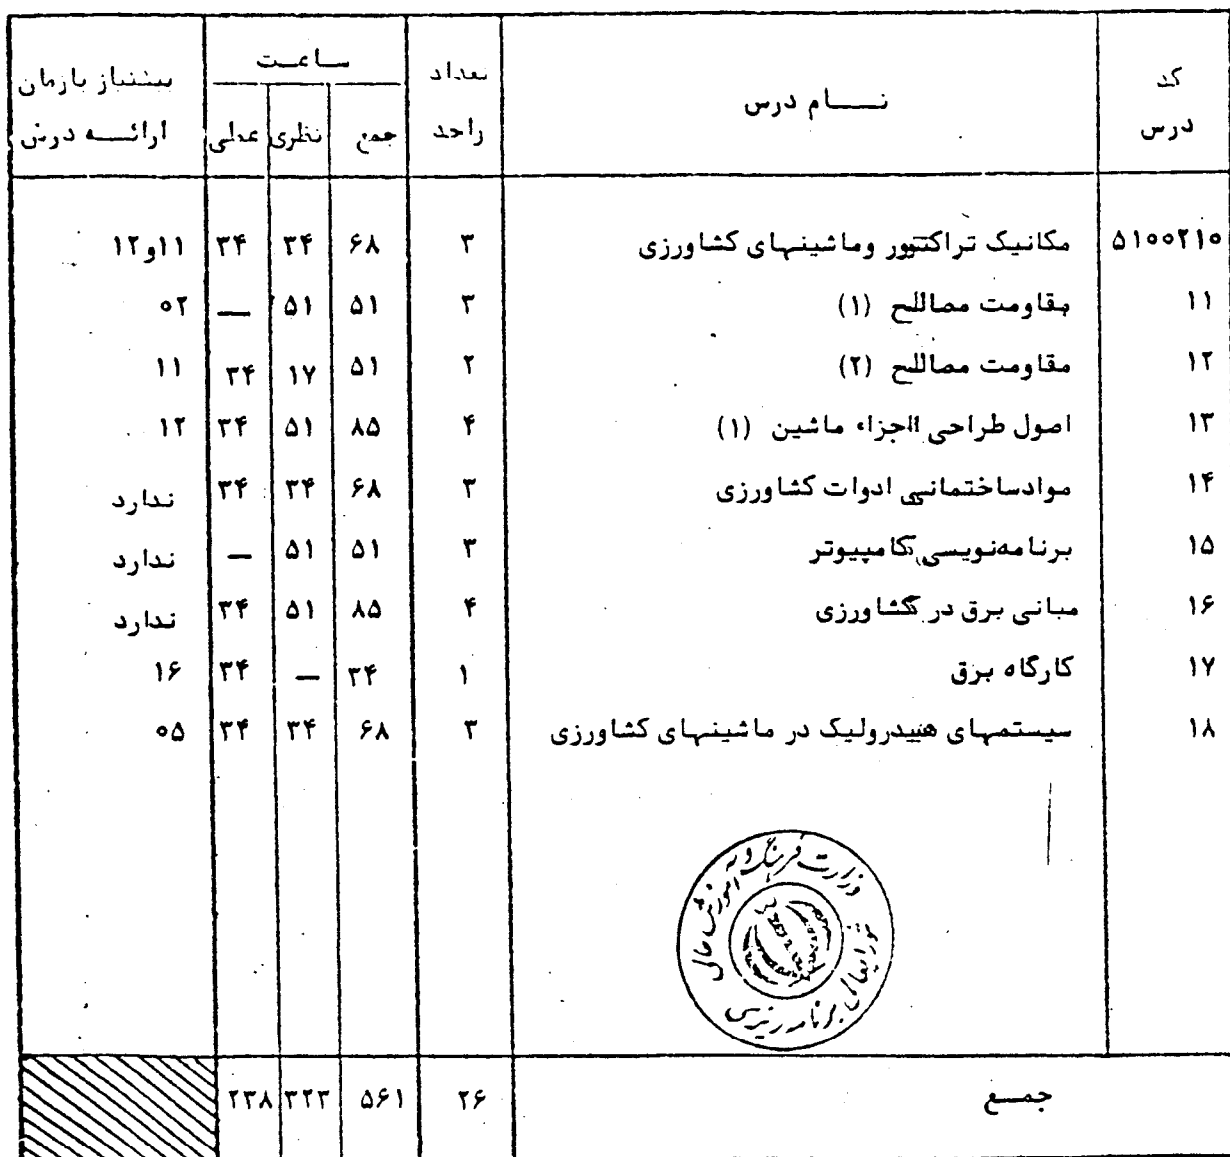 کد درس | نـــام درس | تعداد واحد | ساعـــت | پیشنیاز یا زمان ارائـــه درس
جمع | نظری | عملی
۵۱۰۰۲۱۰ | مکانیک تراکتور و ماشینهای کشاورزی | ۳ | ۶۸ | ۳۴ | ۳۴ | ۱۱و۱۲
۱۱ | مقاومت مصالح (۱) | ۳ | ۵۱ | ۵۱ | — | ۰۲
۱۲ | مقاومت مصالح (۲) | ۲ | ۵۱ | ۱۷ | ۳۴ | ۱۱
۱۳ | اصول طراحی اجزاء ماشین (۱) | ۴ | ۸۵ | ۵۱ | ۳۴ | ۱۲
۱۴ | موادساختمانی ادوات کشاورزی | ۳ | ۶۸ | ۳۴ | ۳۴ | ندارد
۱۵ | برنامه‌نویسی کامپیوتر | ۳ | ۵۱ | ۵۱ | — | ندارد
۱۶ | مبانی برق در کشاورزی | ۴ | ۸۵ | ۵۱ | ۳۴ | ندارد
۱۷ | کارگاه برق | ۱ | ۳۴ | — | ۳۴ | ۱۶
۱۸ | سیستمهای هیدرولیک در ماشینهای کشاورزی | ۳ | ۶۸ | ۳۴ | ۳۴ | ۰۵
وزارت فرهنگ و آموزش عالی
شورایعالی برنامه‌ریزی
جمـــع | ۲۶ | ۵۶۱ | ۳۲۳ | ۲۳۸